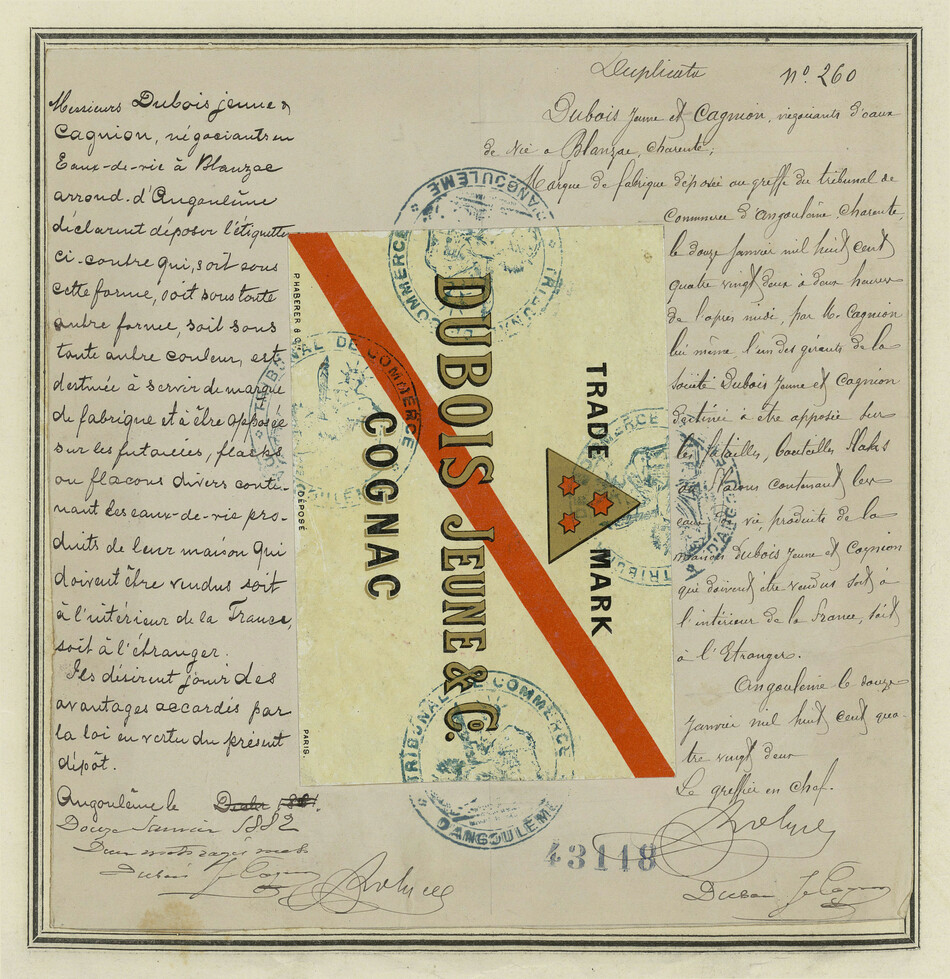 Duplicata
N° 260
Messieurs Dubois jeune &
Cagnion, négociants en
Eaux-de-vie à Blanzac
arrond. d'Angoulême
déclarent déposer l'étiquette
ci-contre qui, soit sous
cette forme, soit sous toute
autre forme, soit sous
toute autre couleur, est
destinée à servir de marque
de fabrique et à être apposée
sur les futailles, flasks
ou flacons divers conte-
nant les eaux-de-vie pro-
duits de leur maison qui
doivent être vendus soit
à l'intérieur de la France,
soit à l'étranger.
Ils désirent jouir des
avantages accordés par
la loi en vertu du présent
dépôt.
Angoulême le
Douze Janvier 1882
Deux mots rayés nuls
Dubois Je Cagnion
DUBOIS JEUNE & Co.
COGNAC
TRADE MARK
P. HABERER & Cie
DÉPOSÉ
PARIS.
TRIBUNAL DE COMMERCE
D'ANGOULÊME
TRIBUNAL DE COMMERCE
D'ANGOULÊME
TRIBUNAL DE COMMERCE
D'ANGOULÊME
TRIBUNAL DE COMMERCE
D'ANGOULÊME
Dubois Jeune et Cagnion, négociants d'eaux
de Vie à Blanzac, Charente,
Marque de fabrique déposée au greffe du tribunal de
Commerce d'Angoulême, Charente,
le douze Janvier mil huit cent
quatre vingt deux à deux heures
de l'après midi, par M. Cagnion
lui même, l'un des gérants de la
société Dubois Jeune et Cagnion
Destinée à être apposée sur
les futailles, bouteilles flasks
ou flacons contenant les
eaux de vie, produits de la
maison Dubois Jeune et Cagnion
qui doivent être vendus soit à
l'intérieur de la France, soit
à l'Etranger.
Angoulême le douze
Janvier mil huit cent qua-
tre vingt deux
Le greffier en chef.
43118
Dubois Je Cagnion